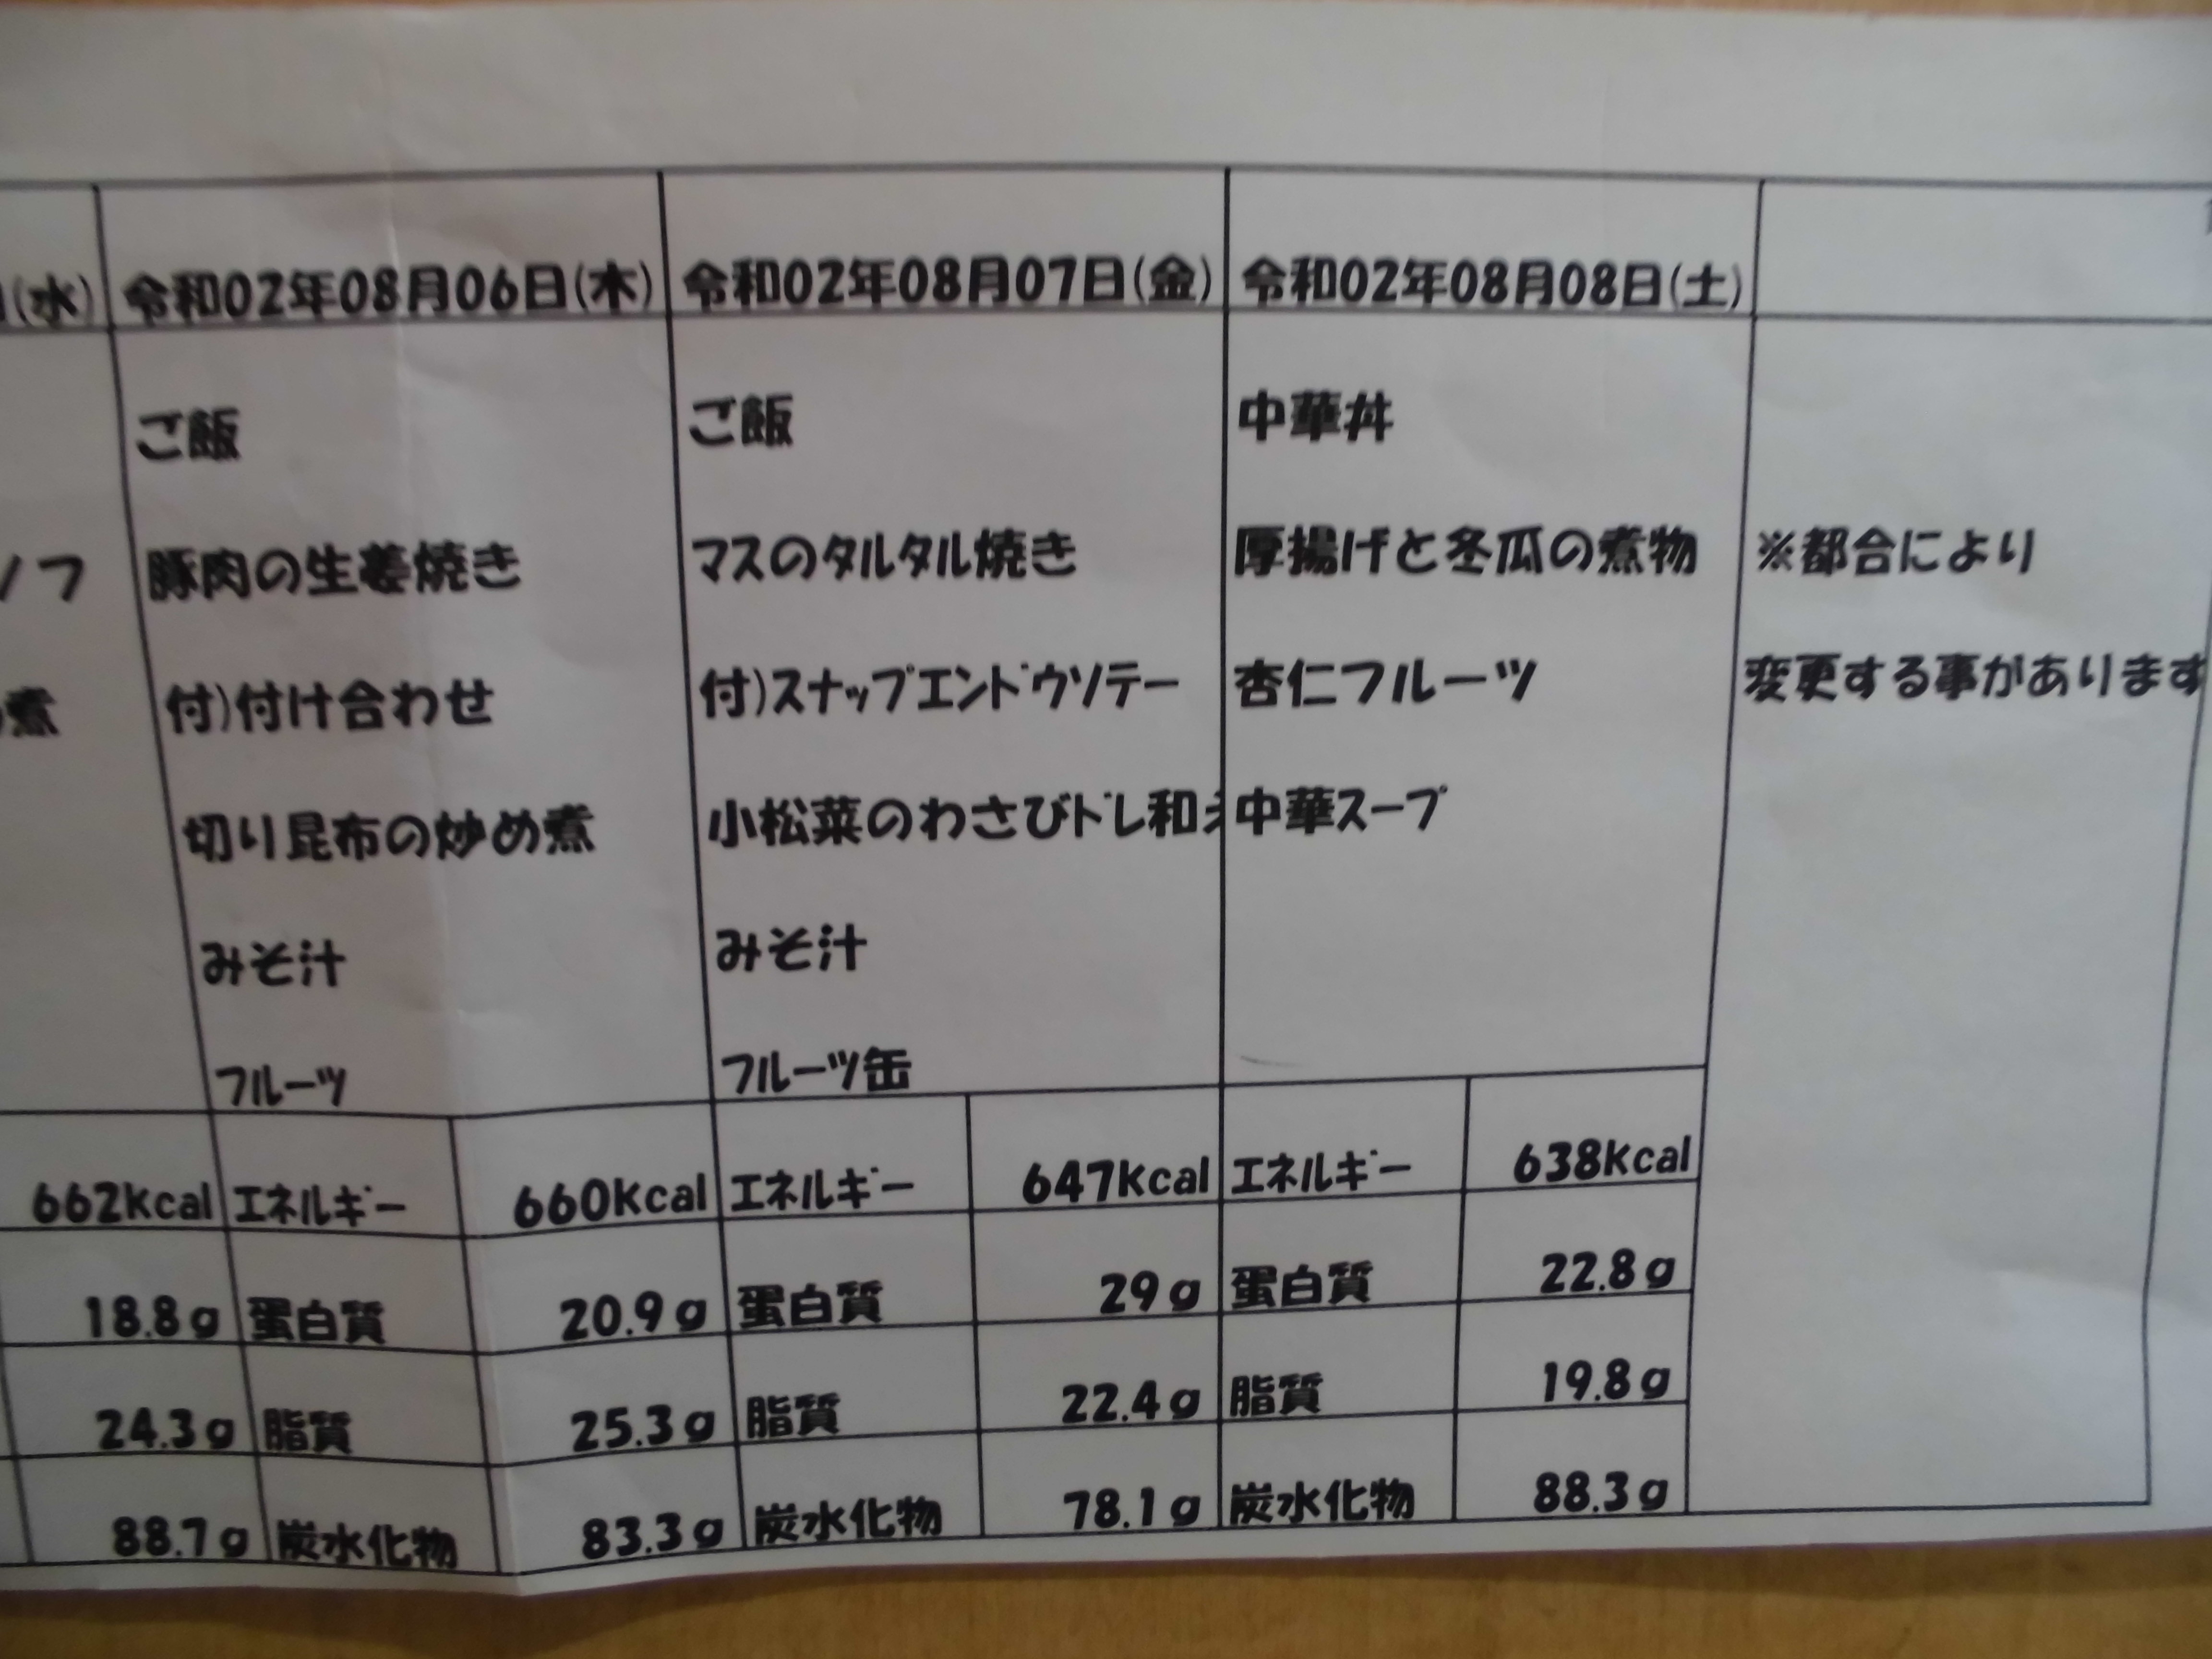 (水) 令和02年08月06日(木) 令和02年08月07日(金) 令和02年08月08日(土)
ご飯 ご飯 中華丼
フ 豚肉の生姜焼き マスのタルタル焼き 厚揚げと冬瓜の煮物 ※都合により
煮 付)付け合わせ 付)スナップエンドウソテー 杏仁フルーツ 変更する事があります
切り昆布の炒め煮 小松菜のわさびドレ和え 中華スープ
みそ汁 みそ汁
フルーツ フルーツ缶
662Kcal エネルギー 660Kcal エネルギー 647Kcal エネルギー 638Kcal
18.8g 蛋白質 20.9g 蛋白質 29g 蛋白質 22.8g
24.3g 脂質 25.3g 脂質 22.4g 脂質 19.8g
88.7g 炭水化物 83.3g 炭水化物 78.1g 炭水化物 88.3g